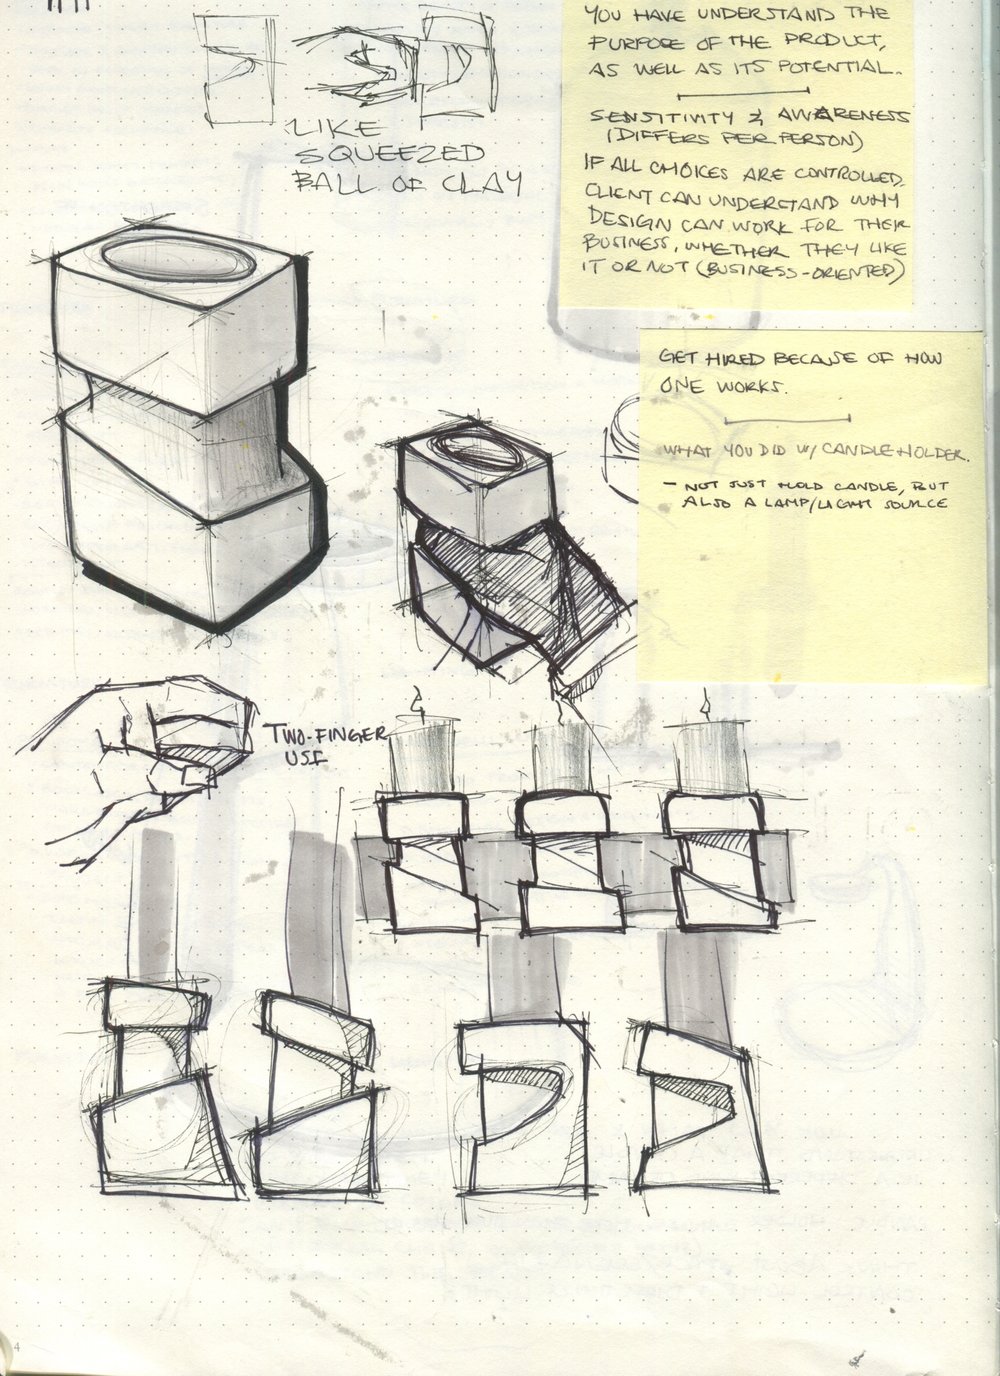 YOU HAVE UNDERSTAND THE
PURPOSE OF THE PRODUCT,
AS WELL AS ITS POTENTIAL.
SENSITIVITY & AWARENESS
(DIFFERS PER PERSON)
IF ALL CHOICES ARE CONTROLLED,
CLIENT CAN UNDERSTAND WHY
DESIGN CAN WORK FOR THEIR
BUSINESS, WHETHER THEY LIKE
IT OR NOT (BUSINESS-ORIENTED)
LIKE
SQUEEZED
BALL OF CLAY
GET HIRED BECAUSE OF HOW
ONE WORKS.
WHAT YOU DID W/ CANDLE HOLDER.
- NOT JUST HOLD CANDLE, BUT
ALSO A LAMP/LIGHT SOURCE
TWO-FINGER
USE
4